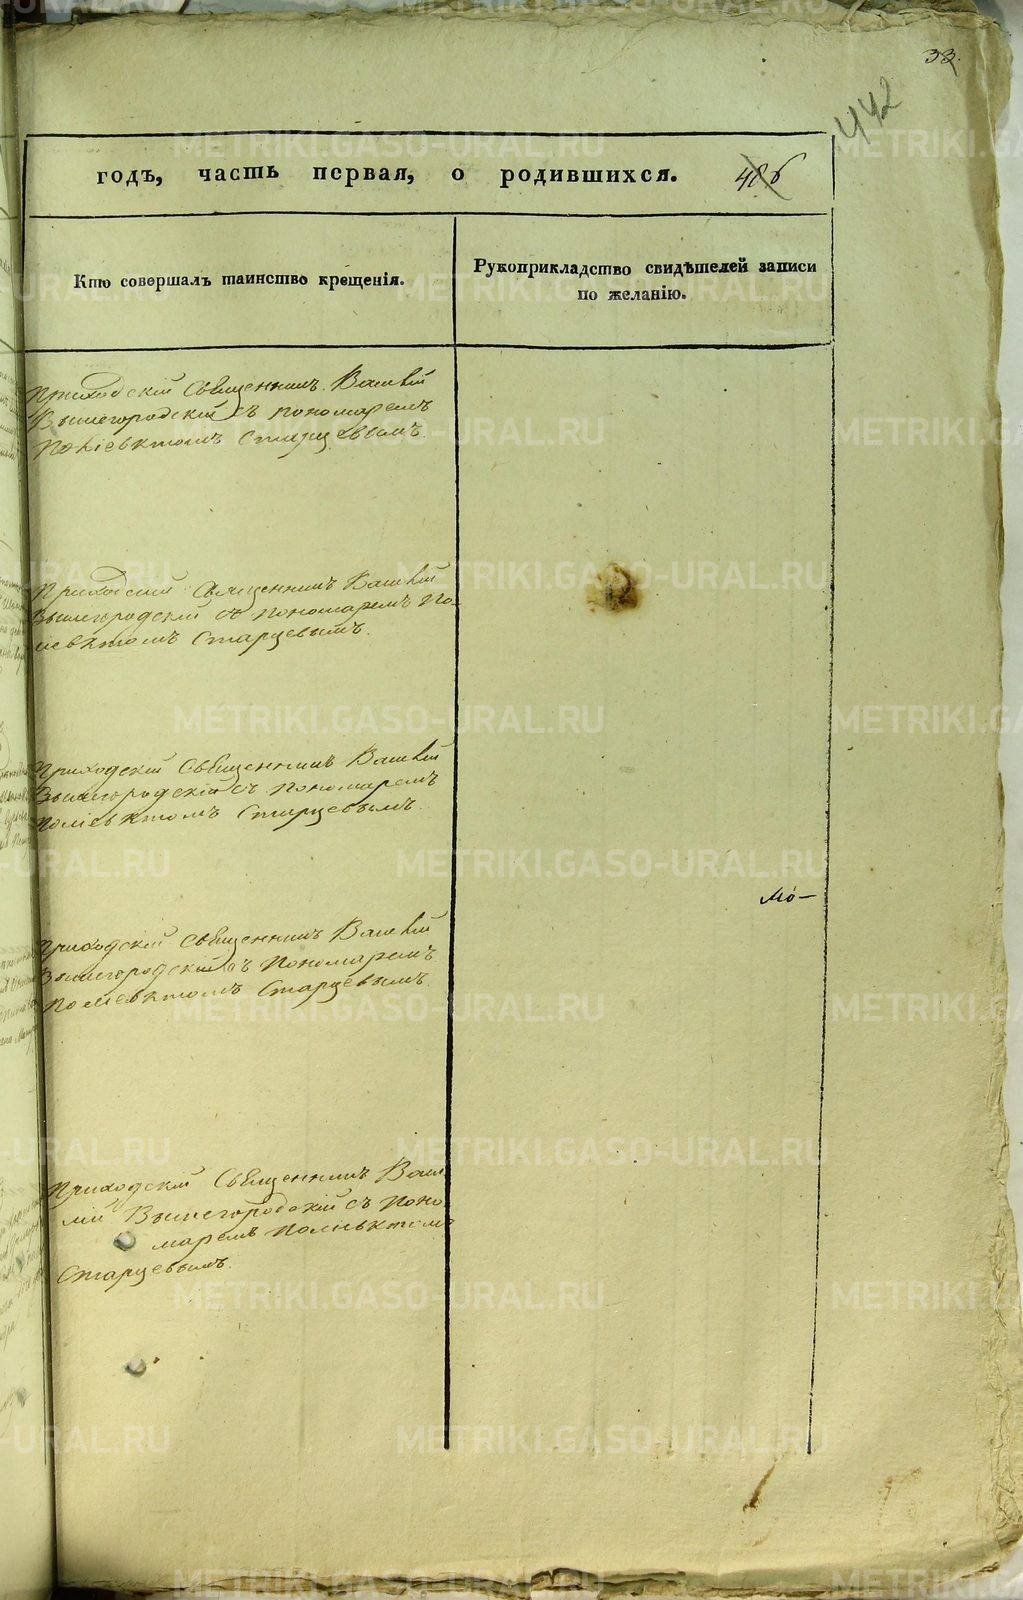 33.
442
годъ, часть первая, о родившихся. 486
Кто совершалъ таинство крещенія.
Рукоприкладство свидѣтелей записи
по желанію.
Приходскій Священникъ Василій
Вышегородскій съ пономаремъ
Поліевктомъ Старцевымъ.
Приходскій Священникъ Василій
Вышегородскій съ Пономаремъ По-
ліевктомъ Старцевымъ.
Приходскій Священникъ Василій
Вышегородскій съ Пономаремъ
Поліевктомъ Старцевымъ.
Мо-
Приходскій Священникъ Василій
Вышегородскій съ Пономаремъ
Поліевктомъ Старцевымъ.
Приходскій Священникъ Васи-
лій Вышегородскій съ Поно-
маремъ Поліевктомъ
Старцевымъ.
METRIKI.GASO-URAL.RU